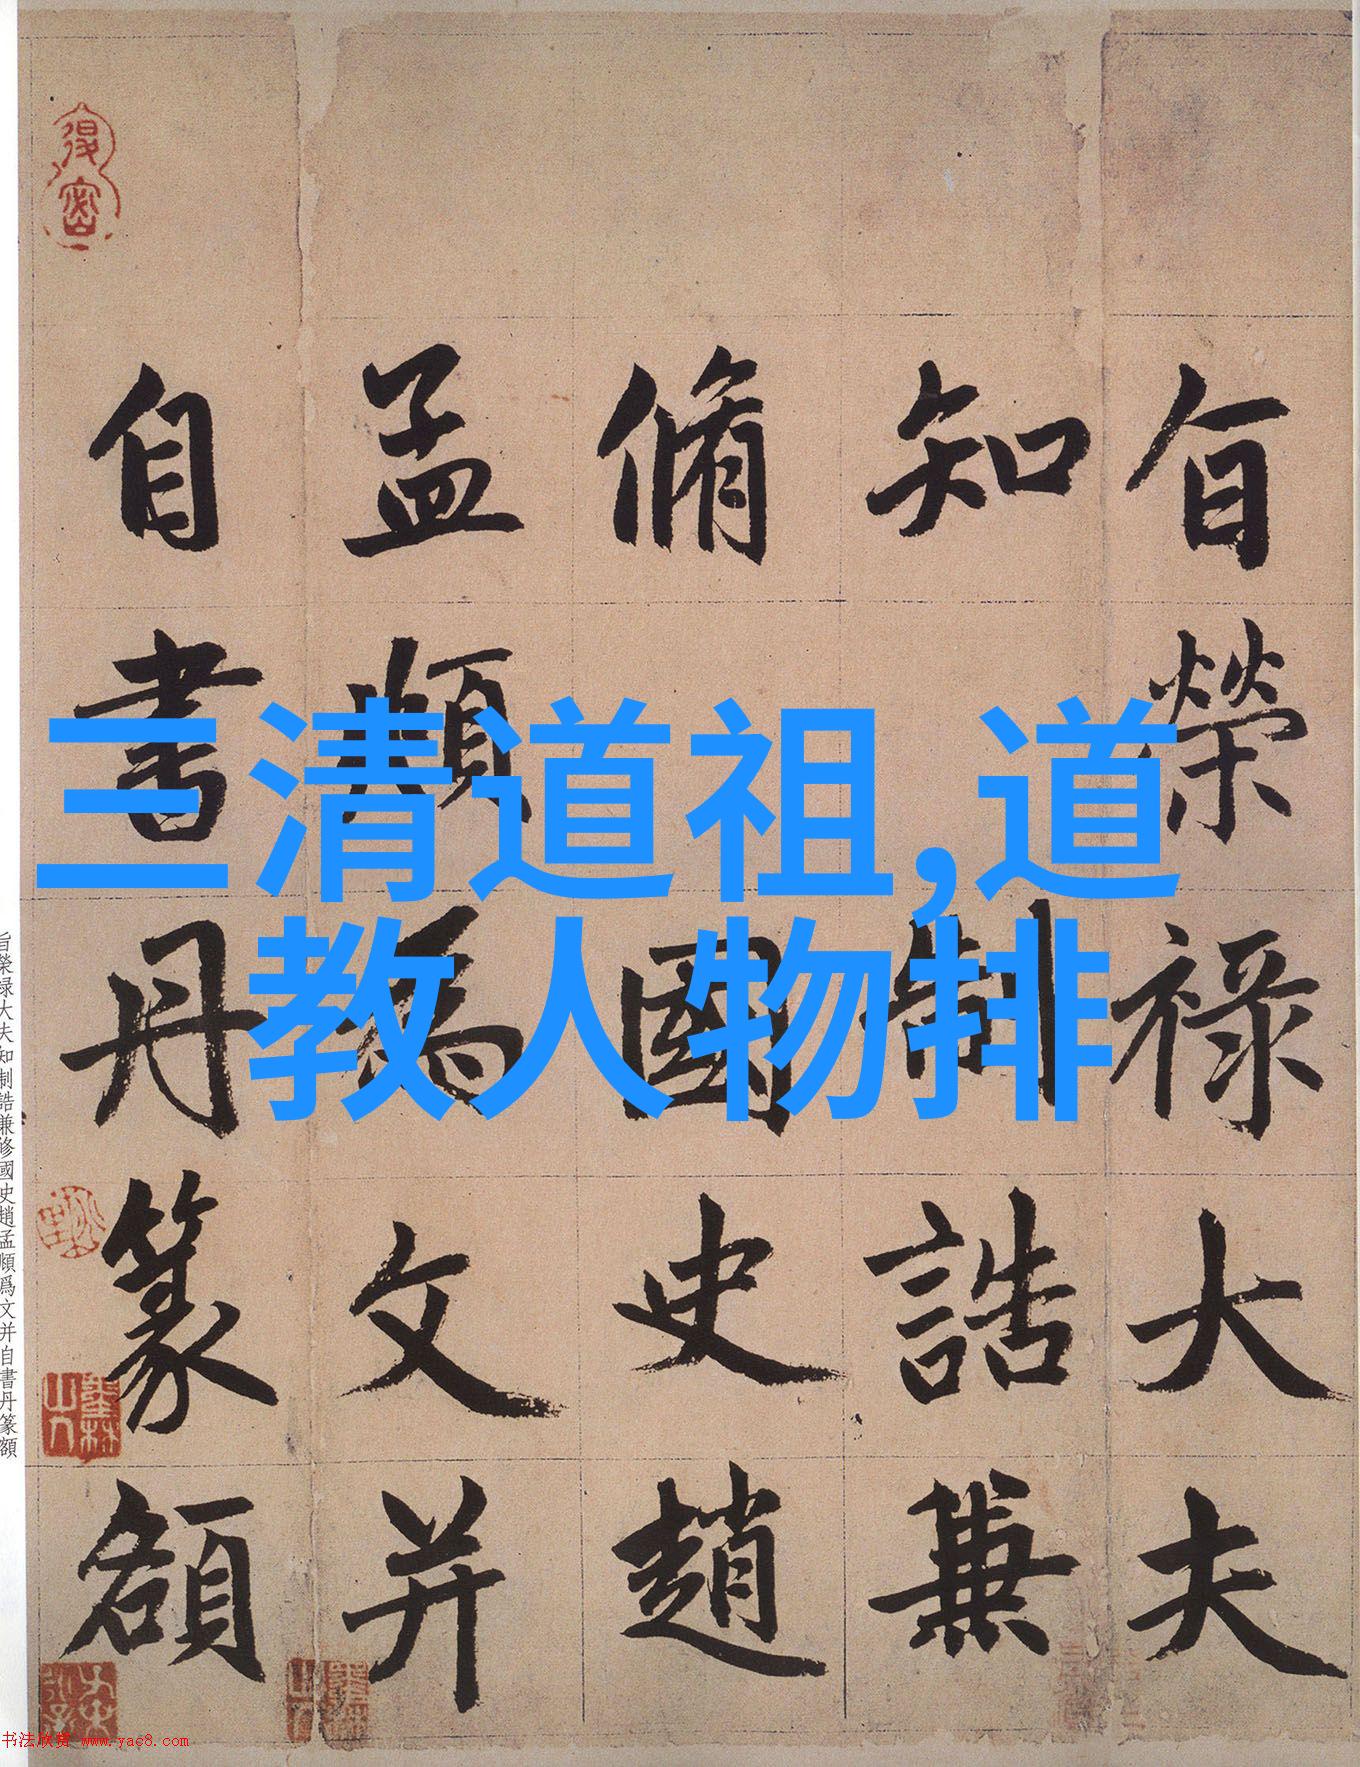 旨榮祿大夫
知制誥兼
脩國史趙
孟頫為文并
自書丹篆額
三清道祖,道
教人物排
旨榮禄大夫知制誥兼修國史趙孟頫爲文并自書丹篆額
书法欣赏 www.yac8.com